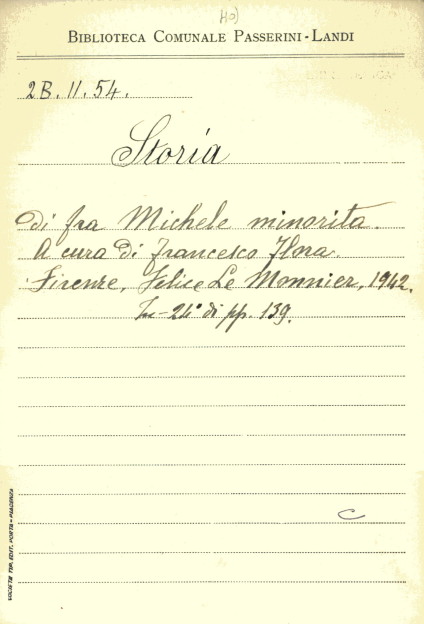 40)
BIBLIOTECA COMUNALE PASSERINI-LANDI
2B.II.54.
Storia
di fra Michele minorita.
A cura di Francesco Flora.
Firenze, Felice Le Monnier, 1942.
In-24° di pp. 139.
C
SOCIETÀ TIP. EDIT. PORTA - PIACENZA